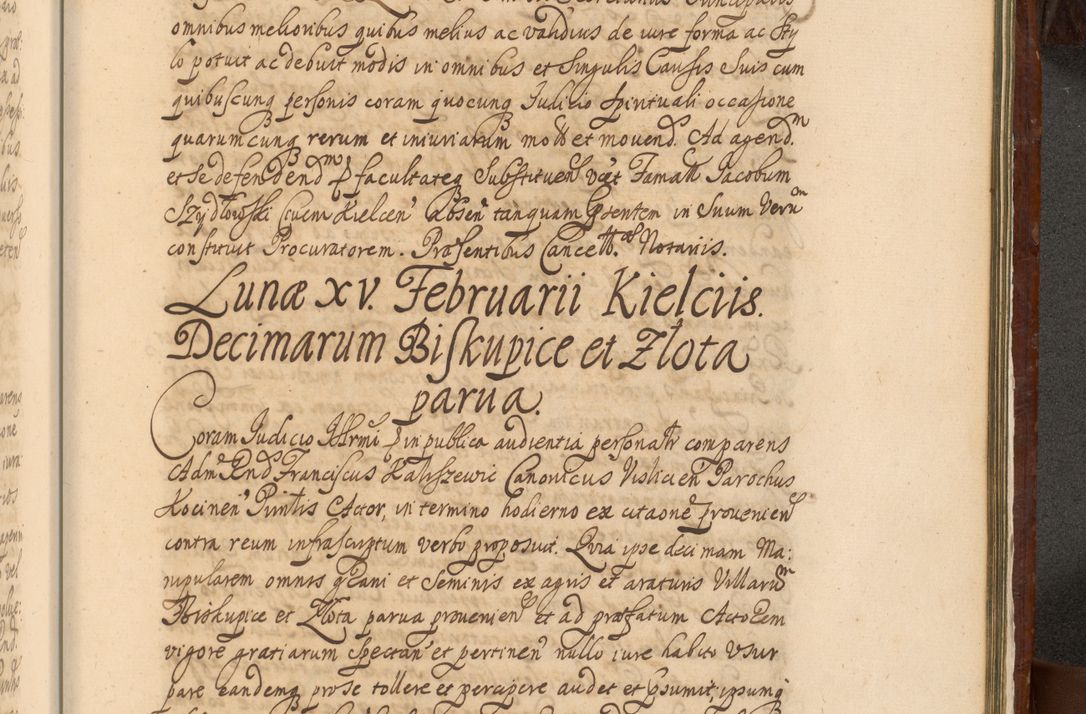 omnibus melioribus quibus melius ac validius de iure forma ac Sty
lo potuit ac debuit modis in omnibus et Singulis Causis Suis cum
quibuscunq personis coram quocunq Iudicio Spirituali occasione
quarumcunq rerum et iniuriarum mott et movend. Ad agendm.
et se defendendm p facultateq Substituen vect Famatt Iacobum
Szydlowski Civem Kielcen Absen tanquam Pntem in Suum Verum
constituit Procuratorem. Præsentibus Cancell. Notariis.
Lunæ XV. Februarii Kielciis.
Decimarum Biskupice et Złota
parua.
Coram Iudicio Illrmi p in publica audientia personatr comparens
Adm Rnd Franciscus Kaliszewic Canonicus Vislicien Parochus
Kocinen Pintis Actor, in termino hodierno ex citaone provenien
contra reum infrascriptum verbo proposuit. Quia ipse decimam Ma:
nipularem omnis grani et Seminis ex agris et araturis Villarum
Biskupice et Złota parua provenien et ad præfatum Actorem
vigore gratiarum Spectan et pertinen nullo iure habito Usur
pare eandemq pro se tollere et percipere audet et præsumit, ipsumq